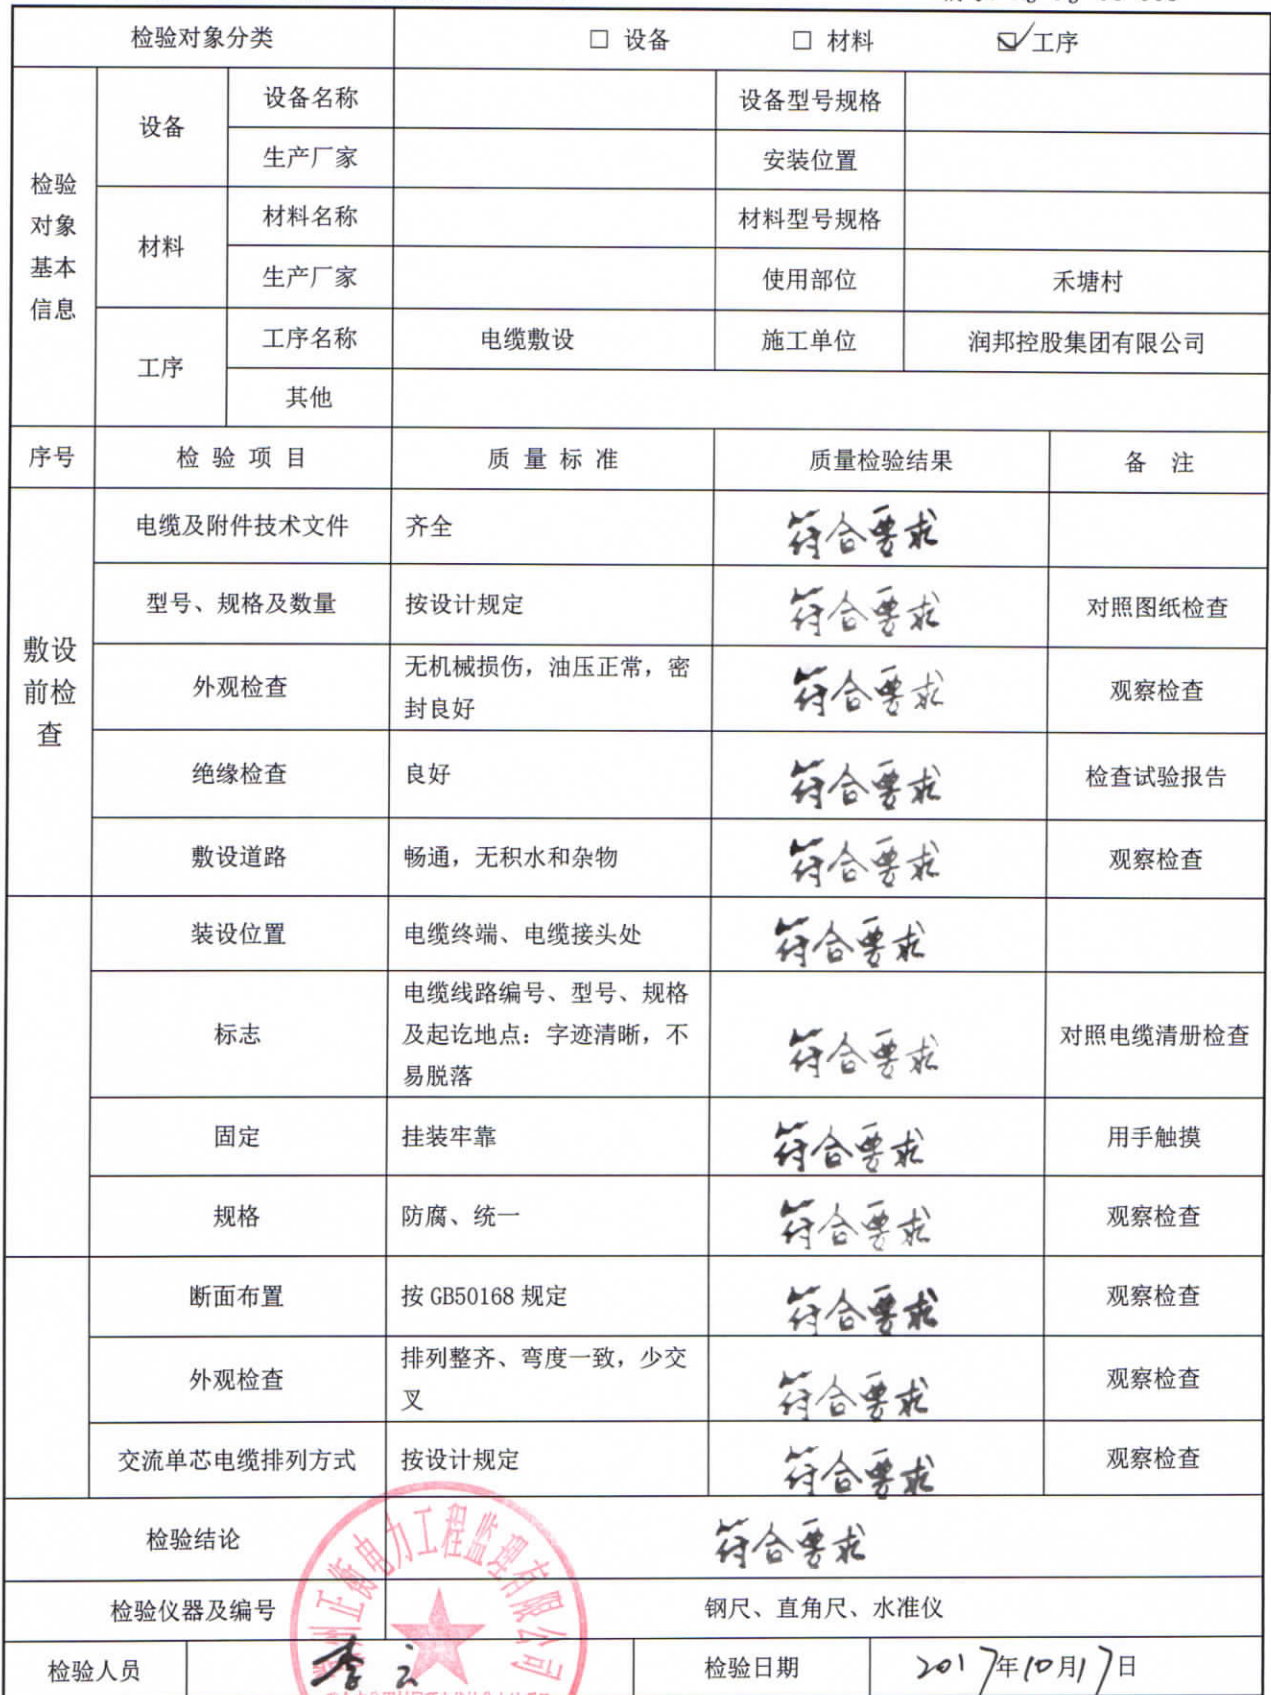 检验对象分类 □ 设备 □ 材料 ☑ 工序
检验对象基本信息
设备 设备名称 设备型号规格
生产厂家 安装位置
材料 材料名称 材料型号规格
生产厂家 使用部位 禾塘村
工序 工序名称 电缆敷设 施工单位 润邦控股集团有限公司
其他
序号 检验项目 质量标准 质量检验结果 备注
敷设前检查
电缆及附件技术文件 齐全 符合要求
型号、规格及数量 按设计规定 符合要求 对照图纸检查
外观检查 无机械损伤，油压正常，密
封良好 符合要求 观察检查
绝缘检查 良好 符合要求 检查试验报告
敷设道路 畅通，无积水和杂物 符合要求 观察检查
装设位置 电缆终端、电缆接头处 符合要求
标志 电缆线路编号、型号、规格
及起讫地点：字迹清晰，不
易脱落 符合要求 对照电缆清册检查
固定 挂装牢靠 符合要求 用手触摸
规格 防腐、统一 符合要求 观察检查
断面布置 按 GB50168 规定 符合要求 观察检查
外观检查 排列整齐、弯度一致，少交
叉 符合要求 观察检查
交流单芯电缆排列方式 按设计规定 符合要求 观察检查
检验结论 符合要求
检验仪器及编号 钢尺、直角尺、水准仪
州正衡电力工程监理有限公司
检验人员 李云 检验日期 2017年10月17日